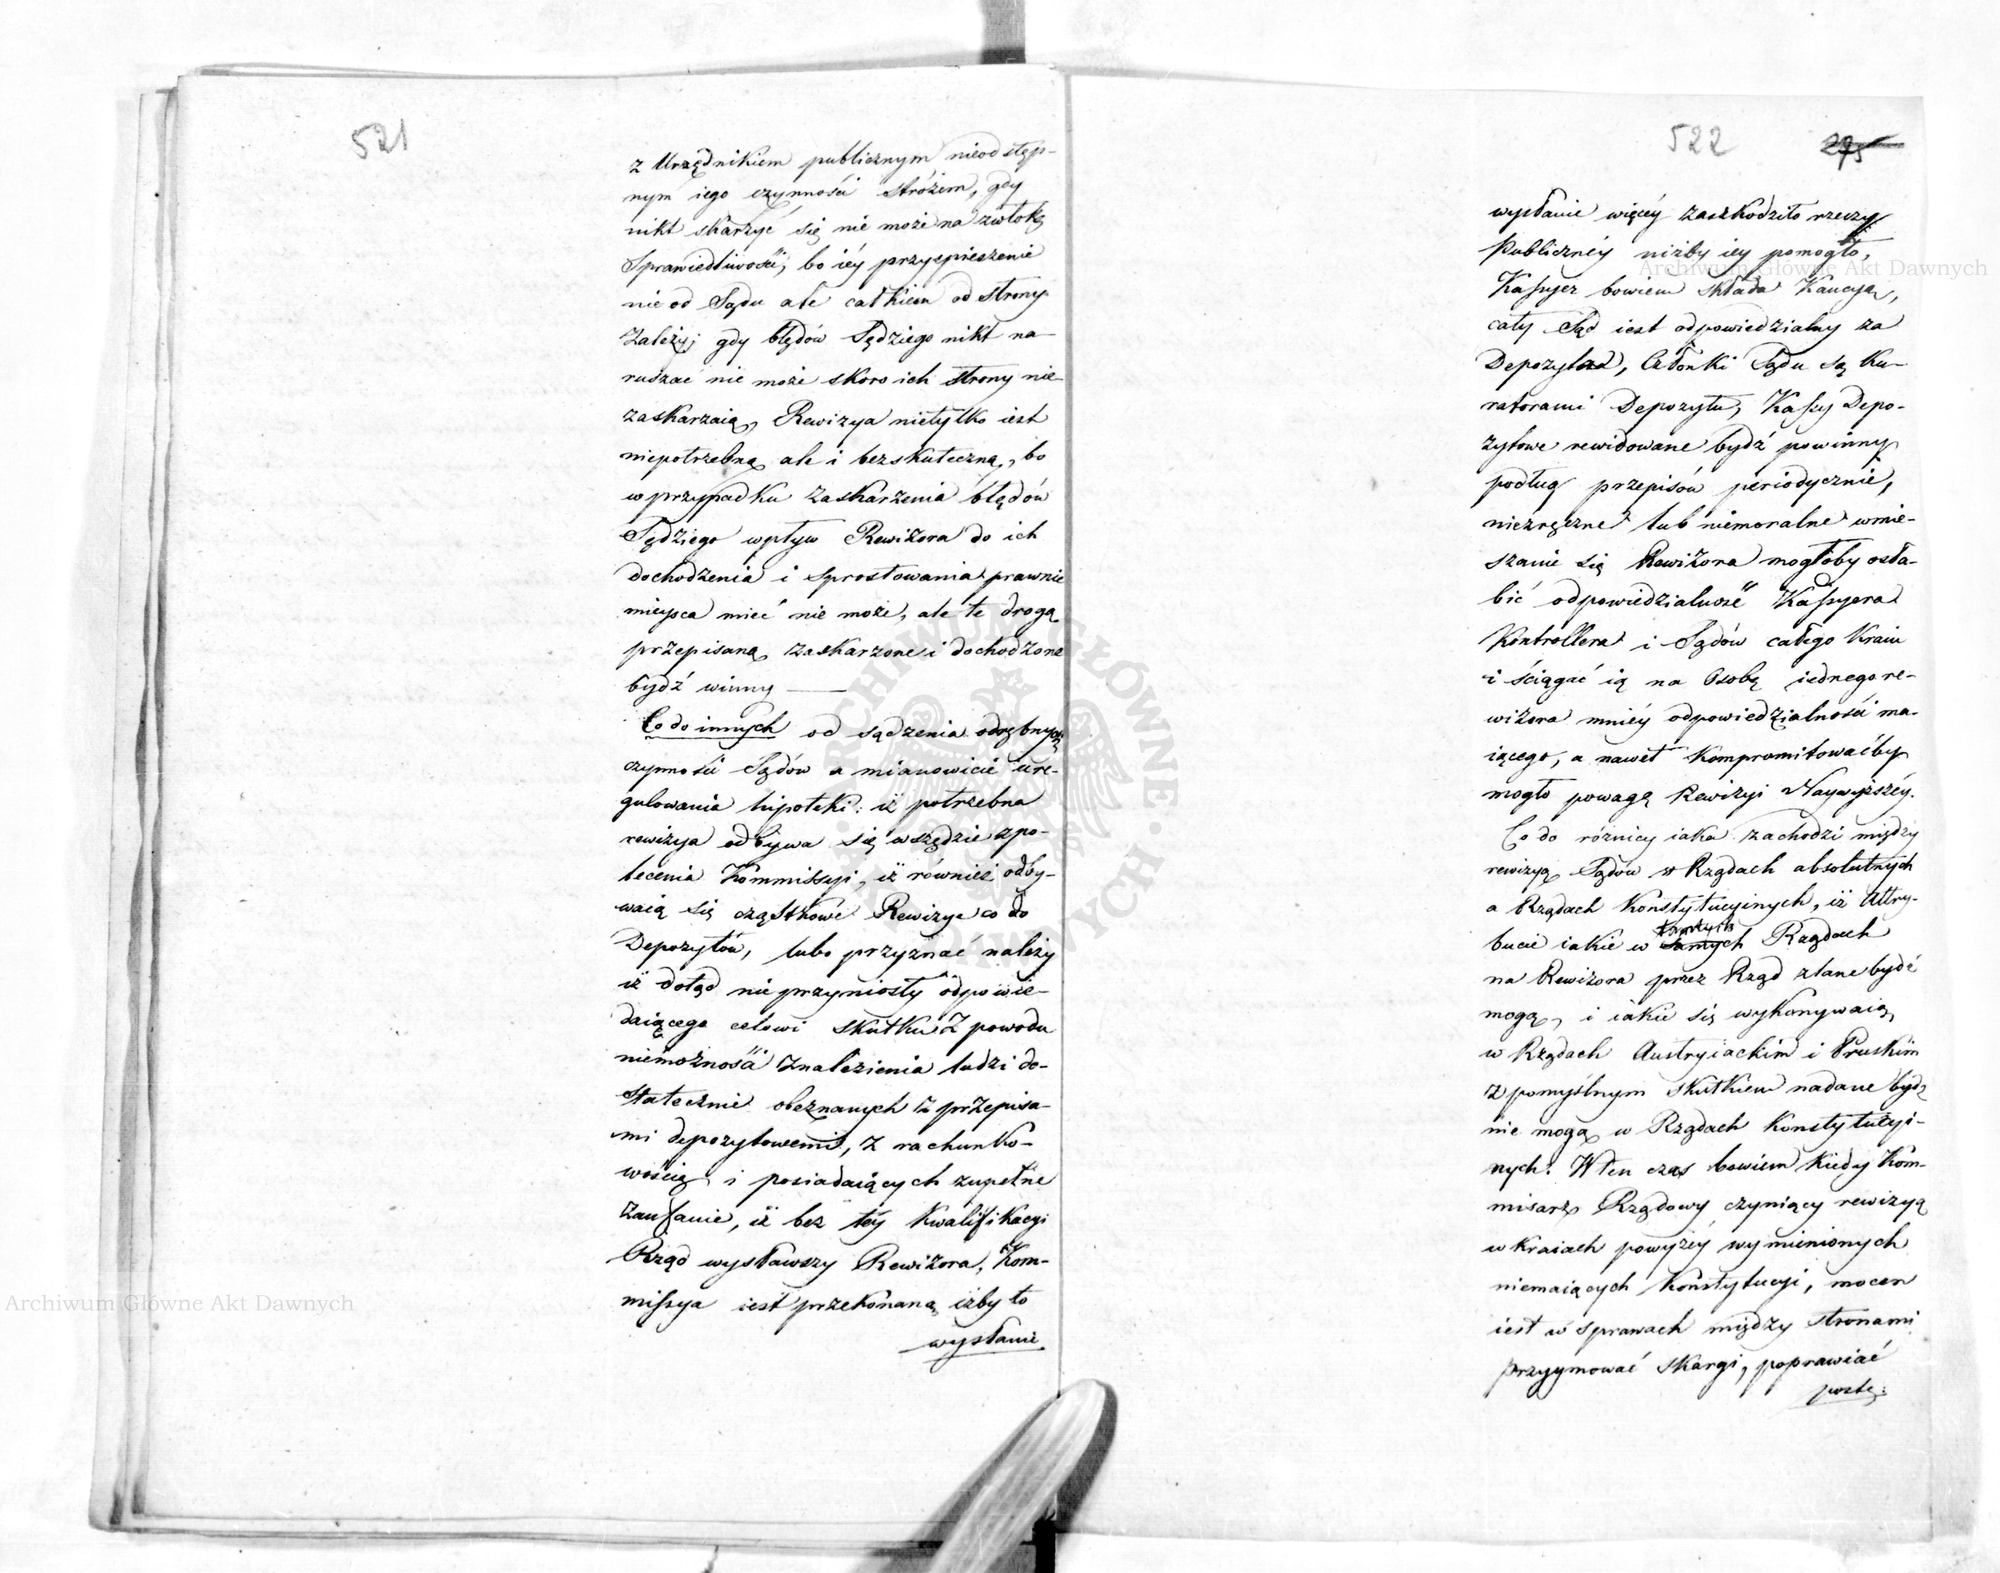 521
z Urzędnikiem publicznym nieodstęp-
nym iego czynności stróżem, gdy
nikt skarżyć się nie może na zwłokę
Sprawiedliwości, bo iéy przyspieszenie
nie od Sądu ale całkiem od strony
zależy; gdy błędów Sędziego nikt na-
ruszać nie może skoro ich strony nie-
zaskarzaią, Rewizya nietylko iest
niepotrzebną ale i bezskuteczną, bo
w przypadku zaskarżenia błędów
Sędziego wpływ Rewizora do ich
dochodzenia i sprostowania prawnie
mieysca mieć nie może, ale te drogą
przepisaną zaskarzone i dochodzone
bydź winny —
Co do innych od sądzenia odrębnych
czynności Sądów a mianowicie ure-
gulowania hipoteki: iż potrzebna
rewizya odbywa się wszędzie z po-
lecenia Kommissyi, iż również odby-
waią się cząstkowe Rewizye co do
Depozytów, lubo przyznać należy
iż dotąd nie przyniosły odpowie-
daiącego celowi skutku z powodu
niemożności znalezienia ludzi do-
statecznie obeznanych z przepisa-
mi depozytowemi, z rachunko-
wością i posiadaiących zupełne
zaufanie, iż bez téy kwalifikacyi
Rząd wysławszy Rewizora, Kom-
missya iest przekonaną iżby to
wysłanie
522
275
wysłanie więcéy zaszkodziło rzeczy
Publicznéy niżby iey pomogło,
Kassyer bowiem składa Kaucyą,
cały Sąd iest odpowiedzialny za
Depozyta, Członki Sądu są Ku-
ratorami Depozytu, Kassy Depo-
zytowe rewidowane bydź powinny
podług przepisów periodycznie,
niezręczne lub niemoralne wmie-
szanie się Rewizora mogłoby osła-
bić odpowiedzialność Kassyera
Kontrollera i Sądów całego Kraiu
i ściągać ią na Osobę iednego re-
wizora mniéy odpowiedzialności ma-
iącego, a nawet kompromitowaćby
mogło powagę Rewizyi Naywyższéy.
Co do różnicy iaka zachodzi między
rewizyą Sądów w Rządach absolutnych
a Rządach Konstytucyinych, iż Attry-
bucie iakie w tamtych Rządach
na Rewizora przez Rząd zlane bydź
mogą, i iakie się wykonywaią
w Rządach Austryiackim i Pruskim
z pomyślnym skutkiem nadane bydź
nie mogą w Rządach Konstytucyi-
nych. W ten czas bowiem kiedy Kom-
misarz Rządowy czyniący rewizyą
w kraiach powyżéy wymienionych
niemaiących Konstytucyi, mocen
iest w sprawach między stronami
przyymować skargi, poprawiać
postę:
Archiwum Główne Akt Dawnych
Archiwum Główne Akt Dawnych
ARCHIWUM GŁÓWNE AKT DAWNYCH